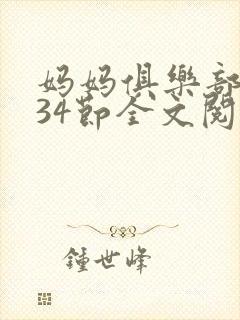 妈妈俱樂部
34節全文閱
鍾世峰